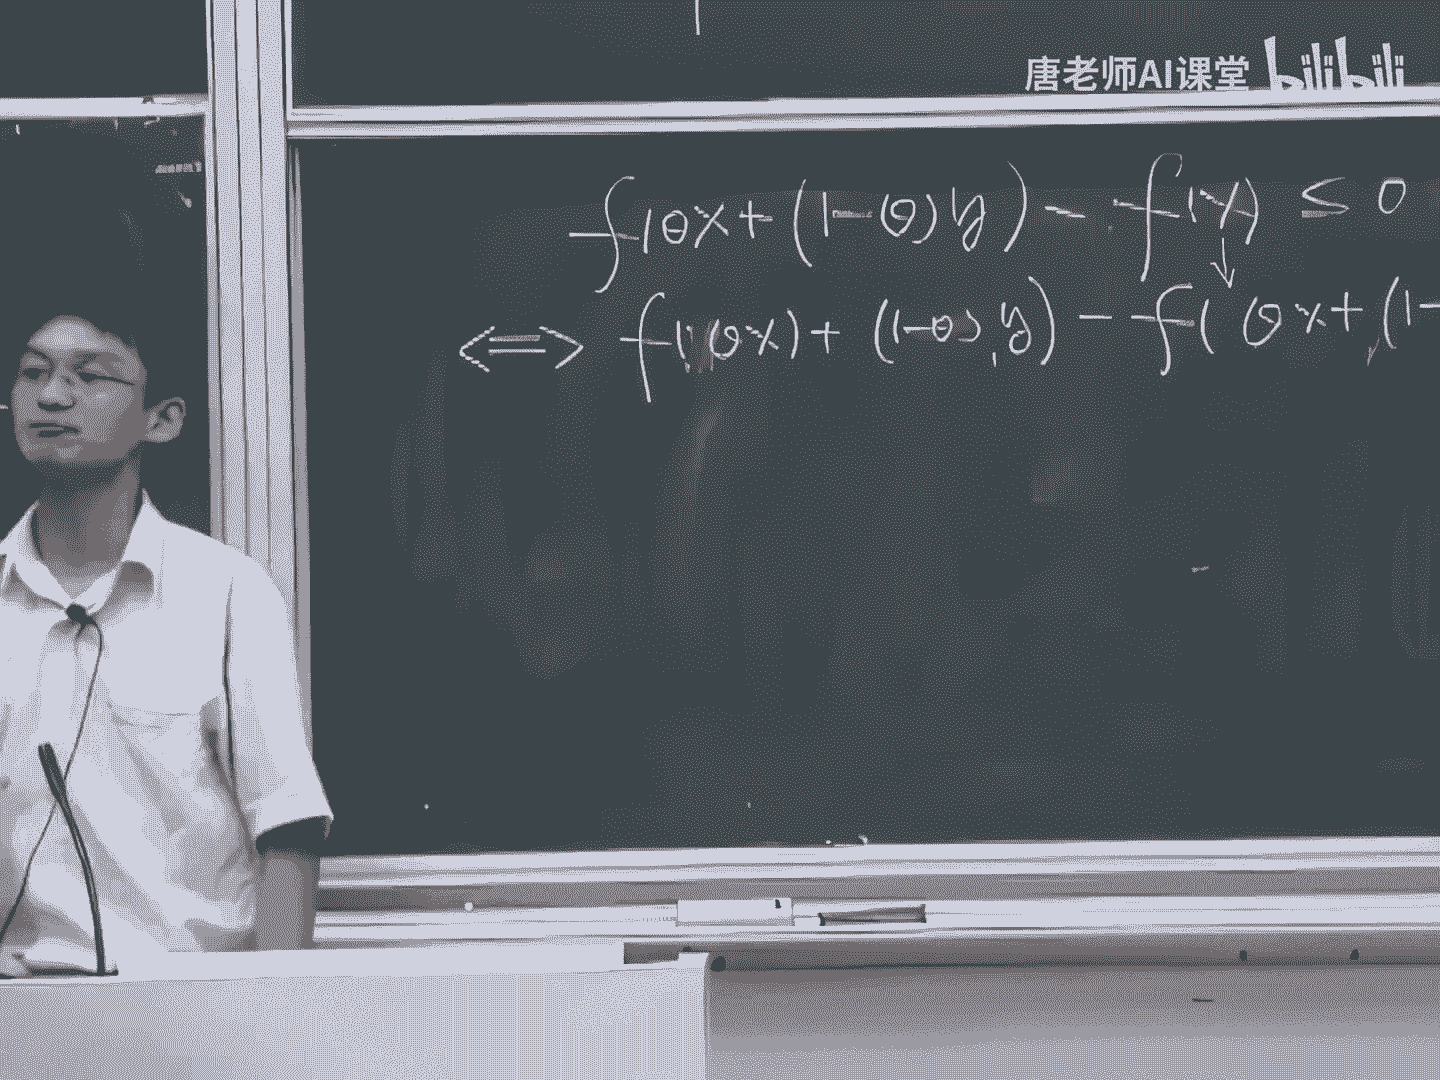 唐老师AI课堂 bilibili
f(θx+(1-θ)y) - f(x) ≤ 0
⇔ f((θx)+(1-θ)y) - f(θx+(1-